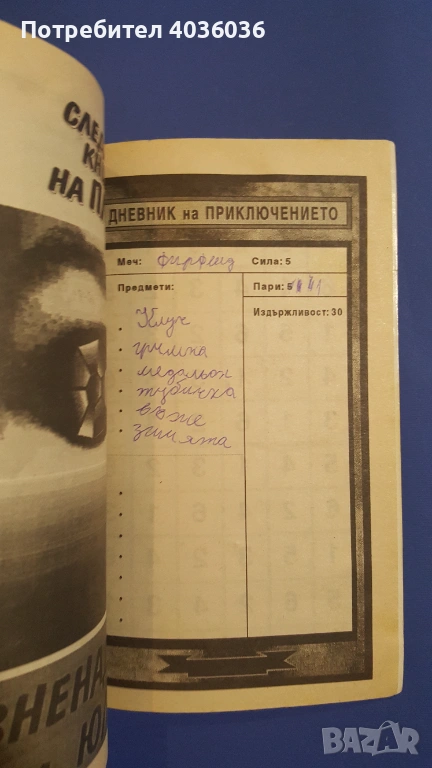 Потребител 4036036
СЛЕД
КН
НА П
ДНЕВНИК на ПРИКЛЮЧЕНИЕТО
Меч: Фирфлид Сила: 5
Предмети: Пари: 5
Издържливост: 30
• Ключ
• гримна
• медальон
• тубичка
• въже
• змията
ЗНЕНА
Ю
BAZAR